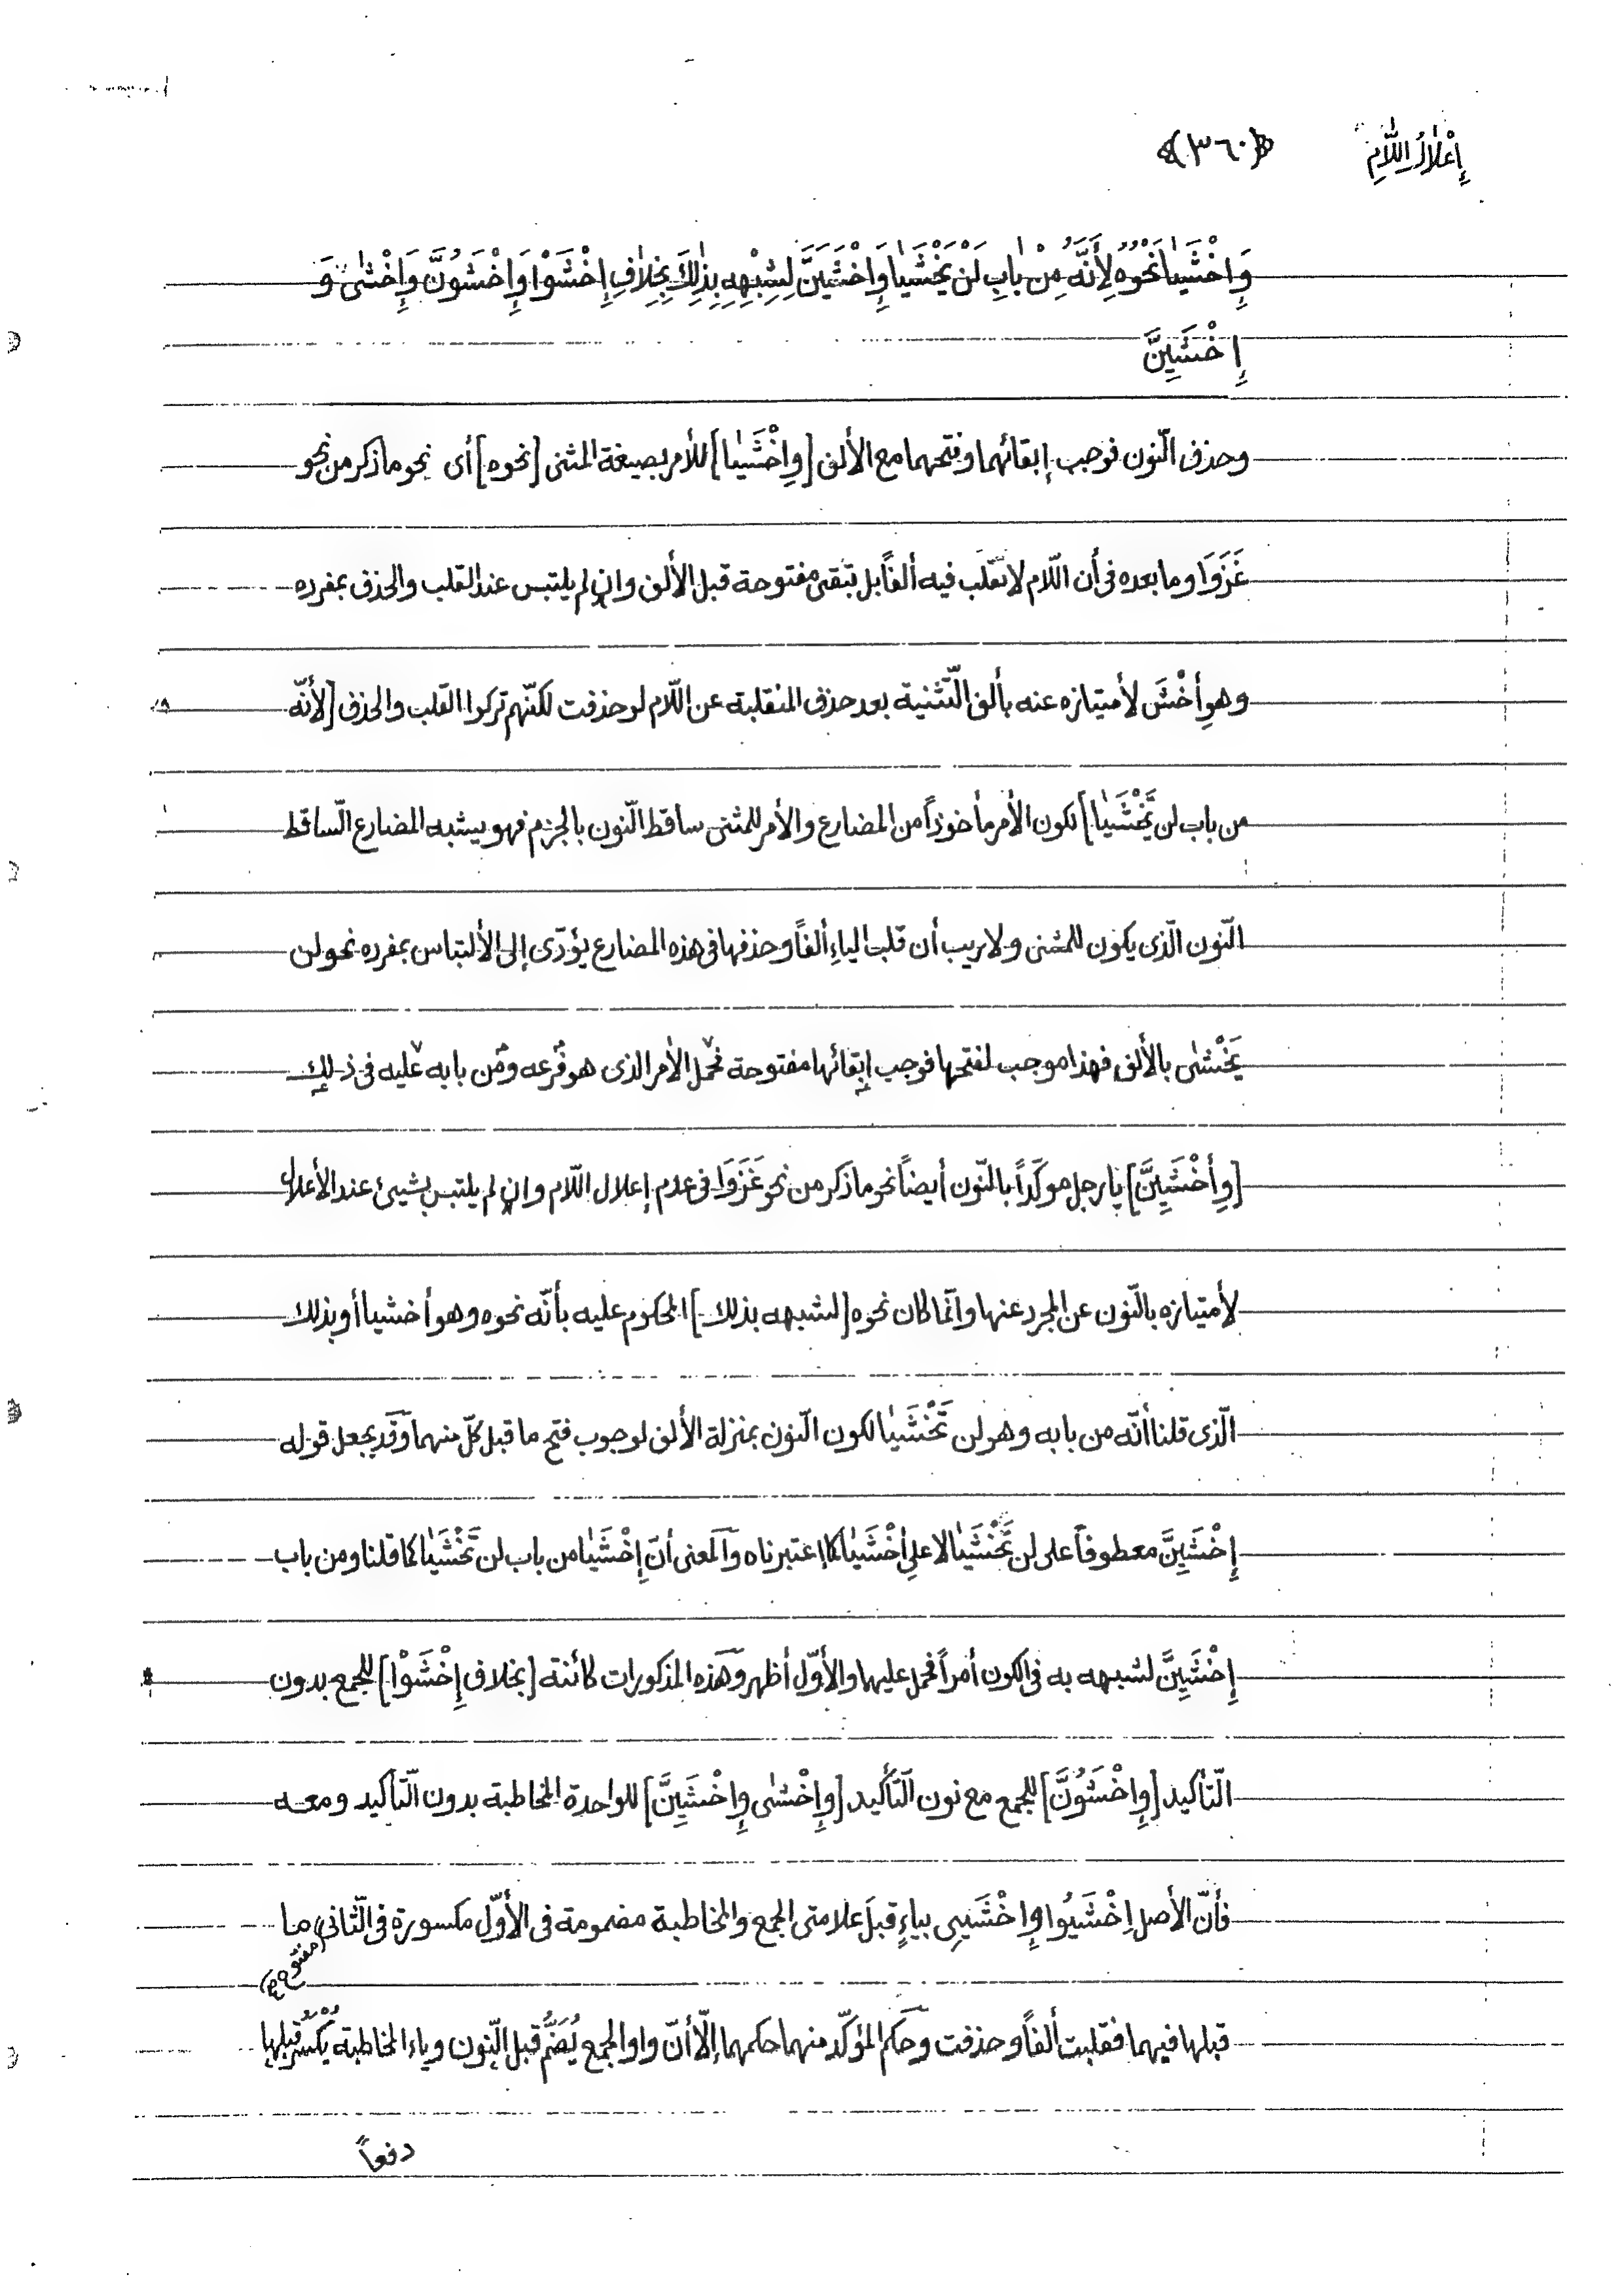 إِعْلَالُ اللَّامِ
﴿٣٦٠﴾
وَاِخْشَيٰا نَحْوُهُ لِأَنَّهُ مِنْ بٰابِ لَنْ يَخْشَيٰا وَاِخْشَيَنَّ لِشِبْهِهِ بِذٰلِكَ بِخِلٰافِ اِخْشَوْا وَاِخْشَوُنَّ وَاِخْشَىْ وَ
اِخْشَيِنَّ
وحذف النّون فوجب إبقائهما وفتحهما مع الألف [وِاخْشَيٰا] للأمر بصيغة المثنى [نحوه] أى نحو ما ذكر من نحو
غَزَوَا وما بعده فى أن اللّام لا تقلب فيه ألفاً بل تبقى مفتوحة قبل الألف وان لم يلتبس عند القلب والحذف بمفرده
وهو أخْشَ لأمتيازه عنه بألف التّثنية بعد حذف المنقلبة عن اللّام لو حذفت لكنّهم تركوا القلب والحذف [لأنّه
من باب لن تَخْشَيٰا] لكون الأمر مأخوذاً من المضارع والأمر للمثنى ساقط النّون بالجزم فهو يشبه المضارع السّاقط
النّون الّذى يكون للمثنى ولا ريب أن قلب الياء ألفاً وحذفها فى هذه المضارع يؤدّى إلى الألتباس بمفرده نحو لن
يَخْشىٰ بالألف فهذا موجب لفتحها فوجب إبقائها مفتوحة فحمل الأمر الذى هو فرعه ومن بابه عليه فى ذلك
[وِأخْشَيِنَّ] يا رجل موكّداً بالنّون أيضاً نحو ما ذكر من نحو غَزَوَا فى عدم إعلال اللّام وان لم يلتبس بشيئ عند الأعلال
لأمتيازه بالنّون عن المجرد عنها وانّما كان نحوه [لشبهه بذلك] المحكوم عليه بأنّه نحوه وهو أخشيا أو بذلك
الّذى قلنا أنّه من بابه وهو لن تَخْشَيٰا لكون النّون بمنزلة الألف لوجوب فتح ما قبل كلّ منهما وقد يجعل قوله
إِخْشَيِنَّ معطوفاً على لن تَخْشَيٰا لا على أخْشَيٰا كما إعتبرناه والمعنى أنّ إِخْشَيٰا من باب لن تَخْشَيٰا كما قلنا ومن باب
إِخْشَيِنَّ لشبهه به فى الكون أمراً فحمل عليها والأوّل أظهر وهذه المذكورات كائنة [بخلاف إِخْشَوْا] للجمع بدون
التّأكيد [وِإخْشَوُنَّ] للجمع مع نون التّأكيد [وِإخْشىٰ وِاخْشَيِنَّ] للواحدة المخاطبة بدون التّأكيد ومعه
فأنّ الأصل اِخْشَيُوا وِاِخْشَيِى بياءٍ قبلَ علامتى الجمع والمخاطبة مضمومة فى الأوّل مكسورة فى الثّانى ما
(مفتوح)
قبلها فيهما فقلبت ألفاً وحذفت وحكم المؤكّد منهما حكمهما إلّا أنّ واو الجمع يُضَمُّ قبل النّون وياء المخاطبة يُكْسَرُ قبلها
دفعاً